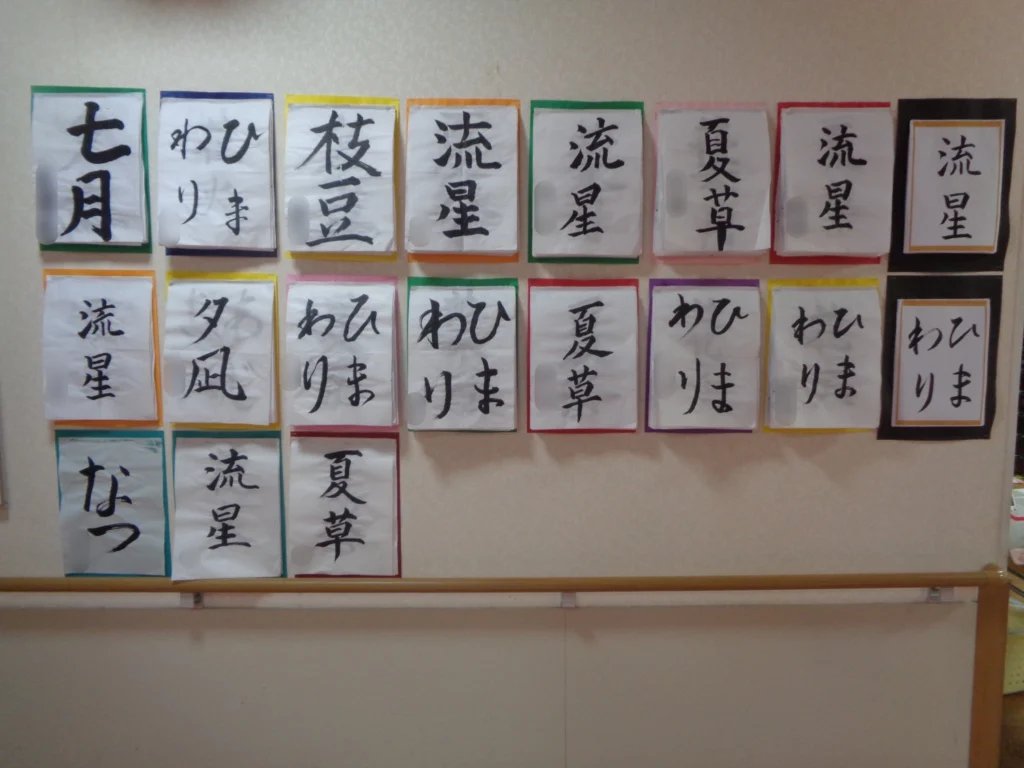 七月
ひま
わり
枝豆
流星
流星
夏草
流星
流星
流星
夕凪
ひま
わり
ひま
わり
夏草
ひま
わり
ひま
わり
ひま
わり
なつ
流星
夏草